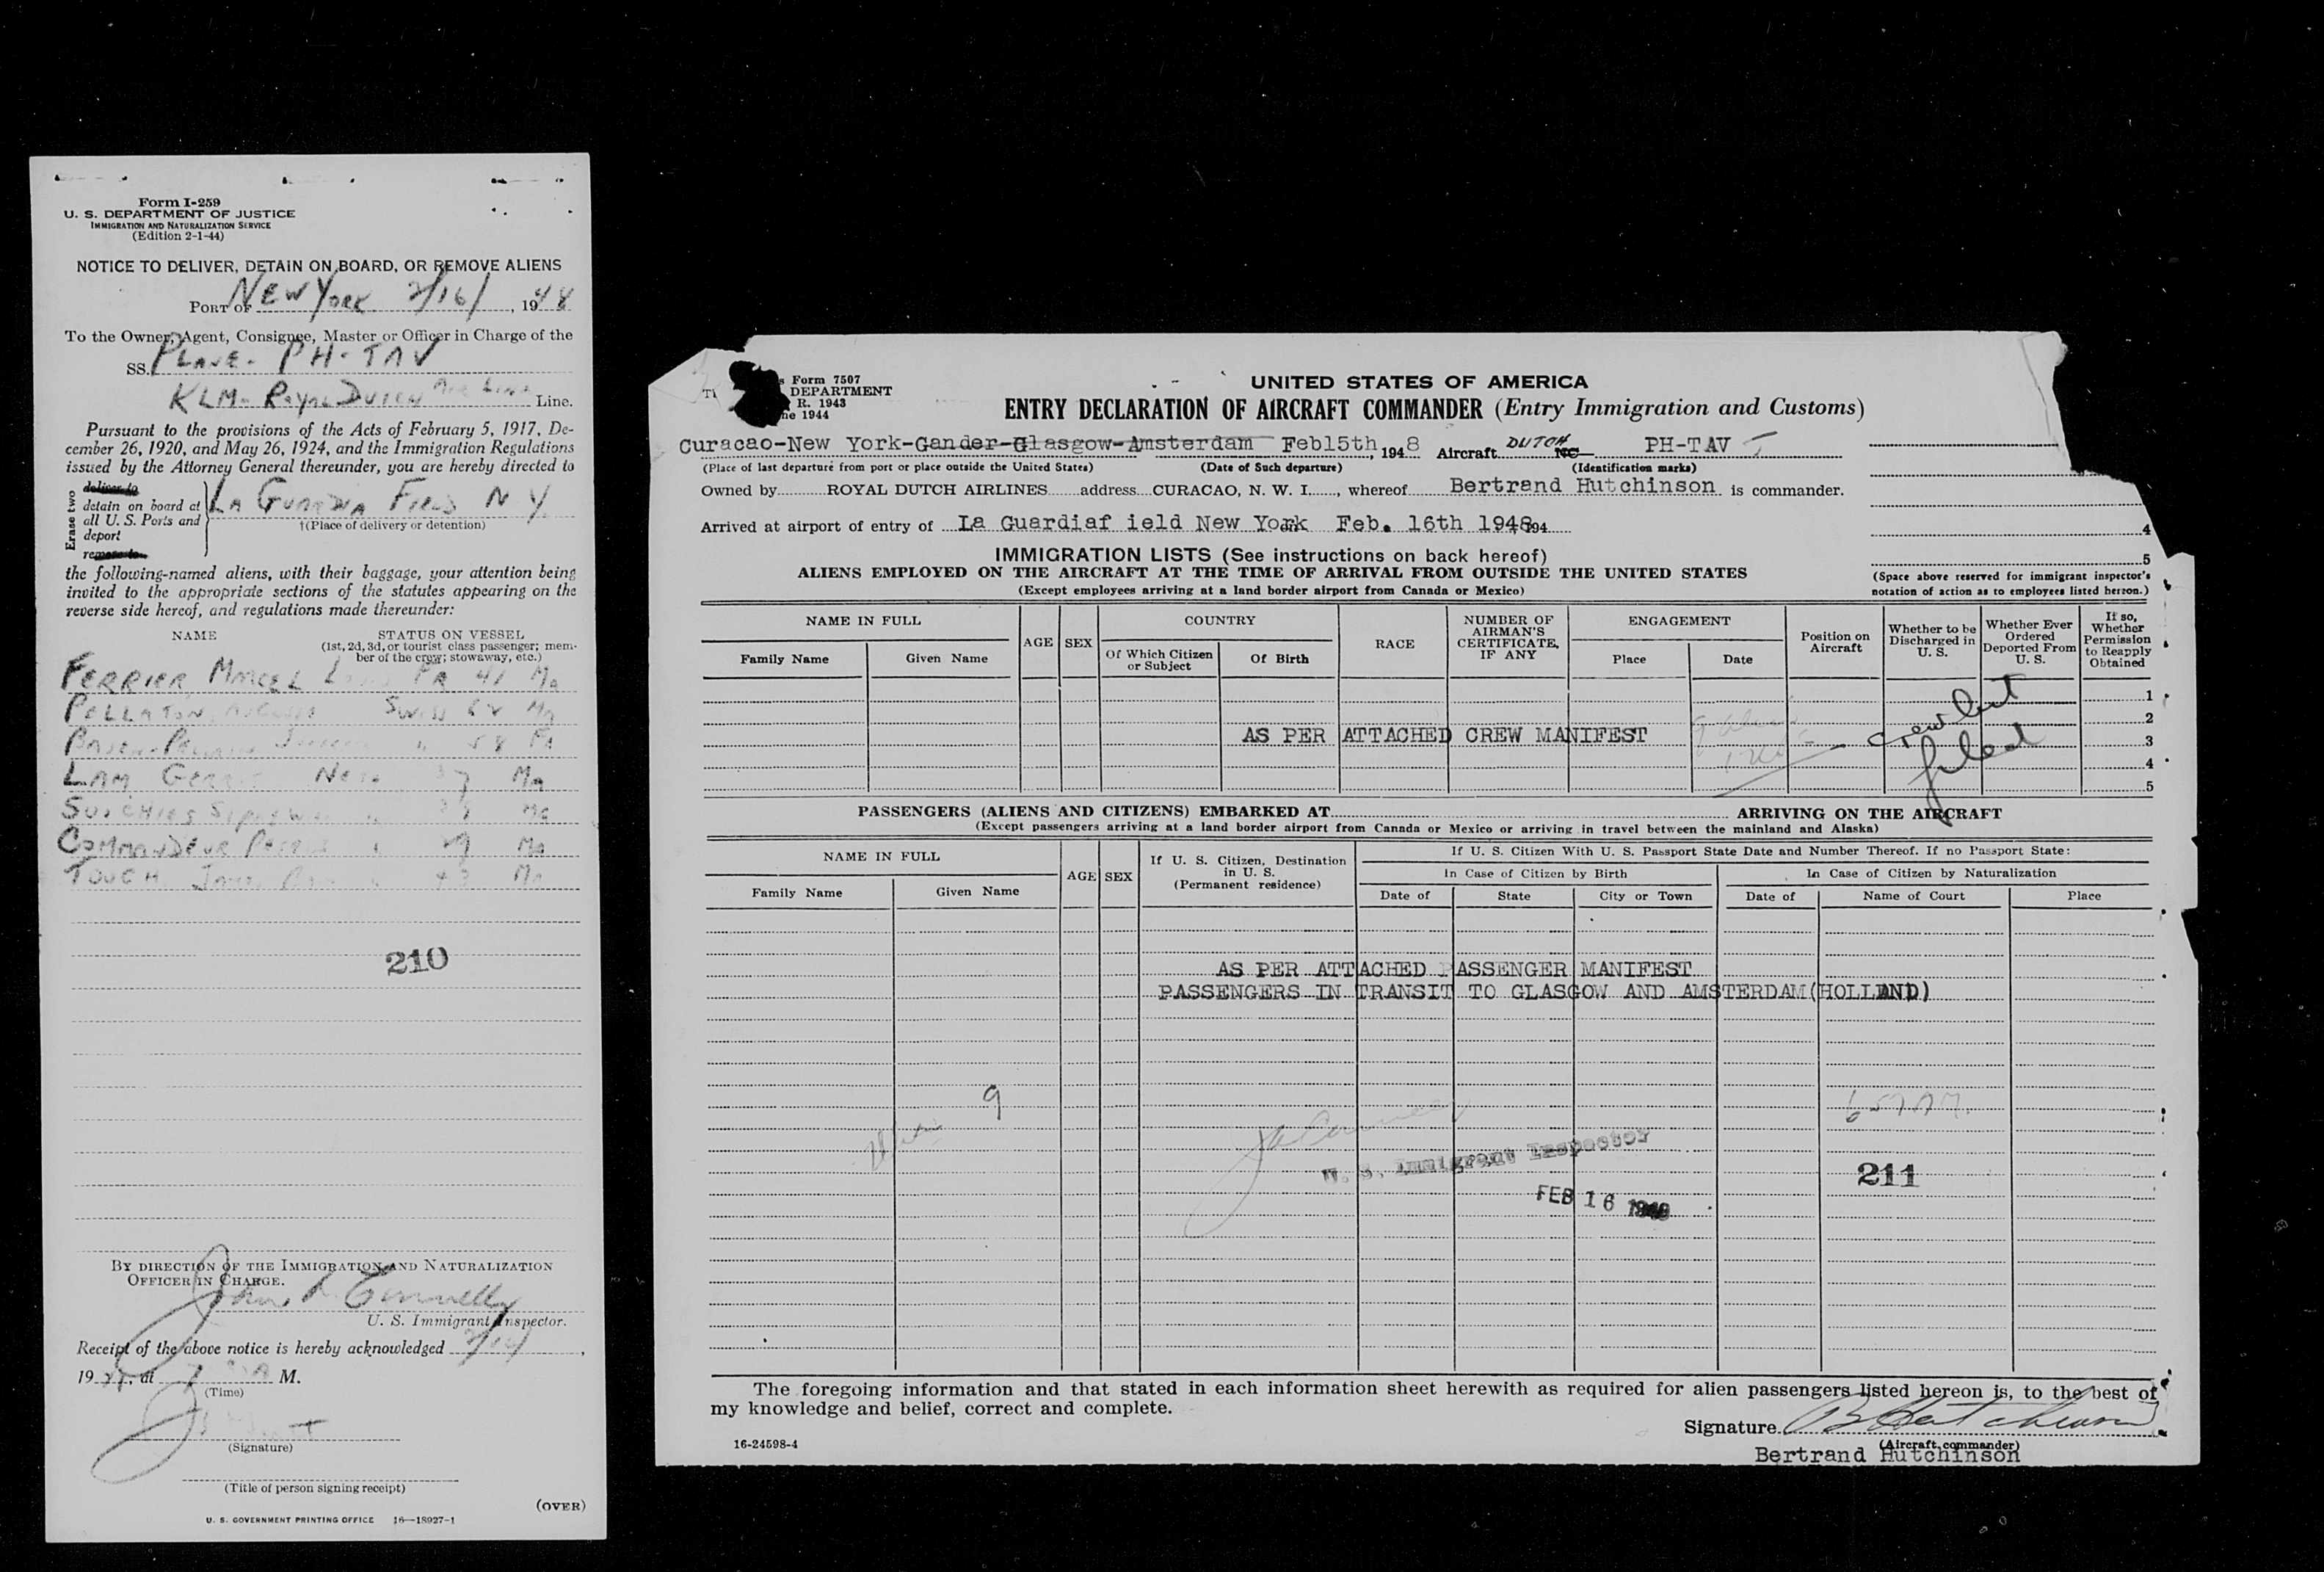 Form I-259
U. S. DEPARTMENT OF JUSTICE
IMMIGRATION AND NATURALIZATION SERVICE
(Edition 2-1-44)
NOTICE TO DELIVER, DETAIN ON BOARD, OR REMOVE ALIENS
PORT OF NEW YORK 2/16/, 1948
To the Owner, Agent, Consignee, Master or Officer in Charge of the
SS. PLANE - PH-TAV
KLM - ROYAL DUTCH AIR LINE Line.
Pursuant to the provisions of the Acts of February 5, 1917, De-
cember 26, 1920, and May 26, 1924, and the Immigration Regulations
issued by the Attorney General thereunder, you are hereby directed to
Erase two
deliver to
detain on board at
all U. S. Ports and
deport
remove to
LA GUARDIA FIELD N Y.
†(Place of delivery or detention)
the following-named aliens, with their baggage, your attention being
invited to the appropriate sections of the statutes appearing on the
reverse side hereof, and regulations made thereunder:
NAME
STATUS ON VESSEL
(1st, 2d, 3d, or tourist class passenger; mem-
ber of the crew; stowaway, etc.)
FERRIER, MARCEL FR 41 Ma
PELLATON, SWISS 62 Ma
58
LAM GERRIT 37 Ma
COMMANDEUR 29 Ma
TOUCH 43 Ma
210
BY DIRECTION OF THE IMMIGRATION AND NATURALIZATION
OFFICER IN CHARGE.
John L. Connelly
U. S. Immigrant Inspector.
Receipt of the above notice is hereby acknowledged 2/16/,
1948, at M.
(Time)
(Signature)
(Title of person signing receipt)
(OVER)
U. S. GOVERNMENT PRINTING OFFICE 16—18927-1
s Form 7507
DEPARTMENT
R. 1943
ne 1944
UNITED STATES OF AMERICA
ENTRY DECLARATION OF AIRCRAFT COMMANDER (Entry Immigration and Customs)
Curacao-New York-Gander-Glasgow-Amsterdam Feb15th, 1948 Aircraft DUTCH NC PH-TAV
(Place of last departure from port or place outside the United States) (Date of Such departure) (Identification marks)
Owned by ROYAL DUTCH AIRLINES address CURACAO, N. W. I., whereof Bertrand Hutchinson is commander.
Arrived at airport of entry of La Guardiaf ield New York Feb. 16th 1948, 194
4
5
(Space above reserved for immigrant inspector's
notation of action as to employees listed hereon.)
IMMIGRATION LISTS (See instructions on back hereof)
ALIENS EMPLOYED ON THE AIRCRAFT AT THE TIME OF ARRIVAL FROM OUTSIDE THE UNITED STATES
(Except employees arriving at a land border airport from Canada or Mexico)
NAME IN FULL
Family Name
Given Name
AGE
SEX
COUNTRY
Of Which Citizen or Subject
Of Birth
RACE
NUMBER OF AIRMAN'S CERTIFICATE, IF ANY
ENGAGEMENT
Place
Date
Position on Aircraft
Whether to be Discharged in U. S.
Whether Ever Ordered Deported From U. S.
If so, Whether Permission to Reapply Obtained
1
2
AS PER ATTACHED CREW MANIFEST
crew list
filed
3
4
5
PASSENGERS (ALIENS AND CITIZENS) EMBARKED AT ARRIVING ON THE AIRCRAFT
(Except passengers arriving at a land border airport from Canada or Mexico or arriving in travel between the mainland and Alaska)
NAME IN FULL
Family Name
Given Name
AGE
SEX
If U. S. Citizen, Destination in U. S. (Permanent residence)
If U. S. Citizen With U. S. Passport State Date and Number Thereof. If no Passport State:
In Case of Citizen by Birth
In Case of Citizen by Naturalization
Date of
State
City or Town
Date of
Name of Court
Place
AS PER ATTACHED PASSENGER MANIFEST
PASSENGERS IN TRANSIT TO GLASGOW AND AMSTERDAM(HOLLAND)
9
657 AM.
U. S. Immigrant Inspector
211
FEB 16 1948
The foregoing information and that stated in each information sheet herewith as required for alien passengers listed hereon is, to the best of
my knowledge and belief, correct and complete.
Signature B Hutchinson
(Aircraft commander)
Bertrand Hutchinson
16-24598-4